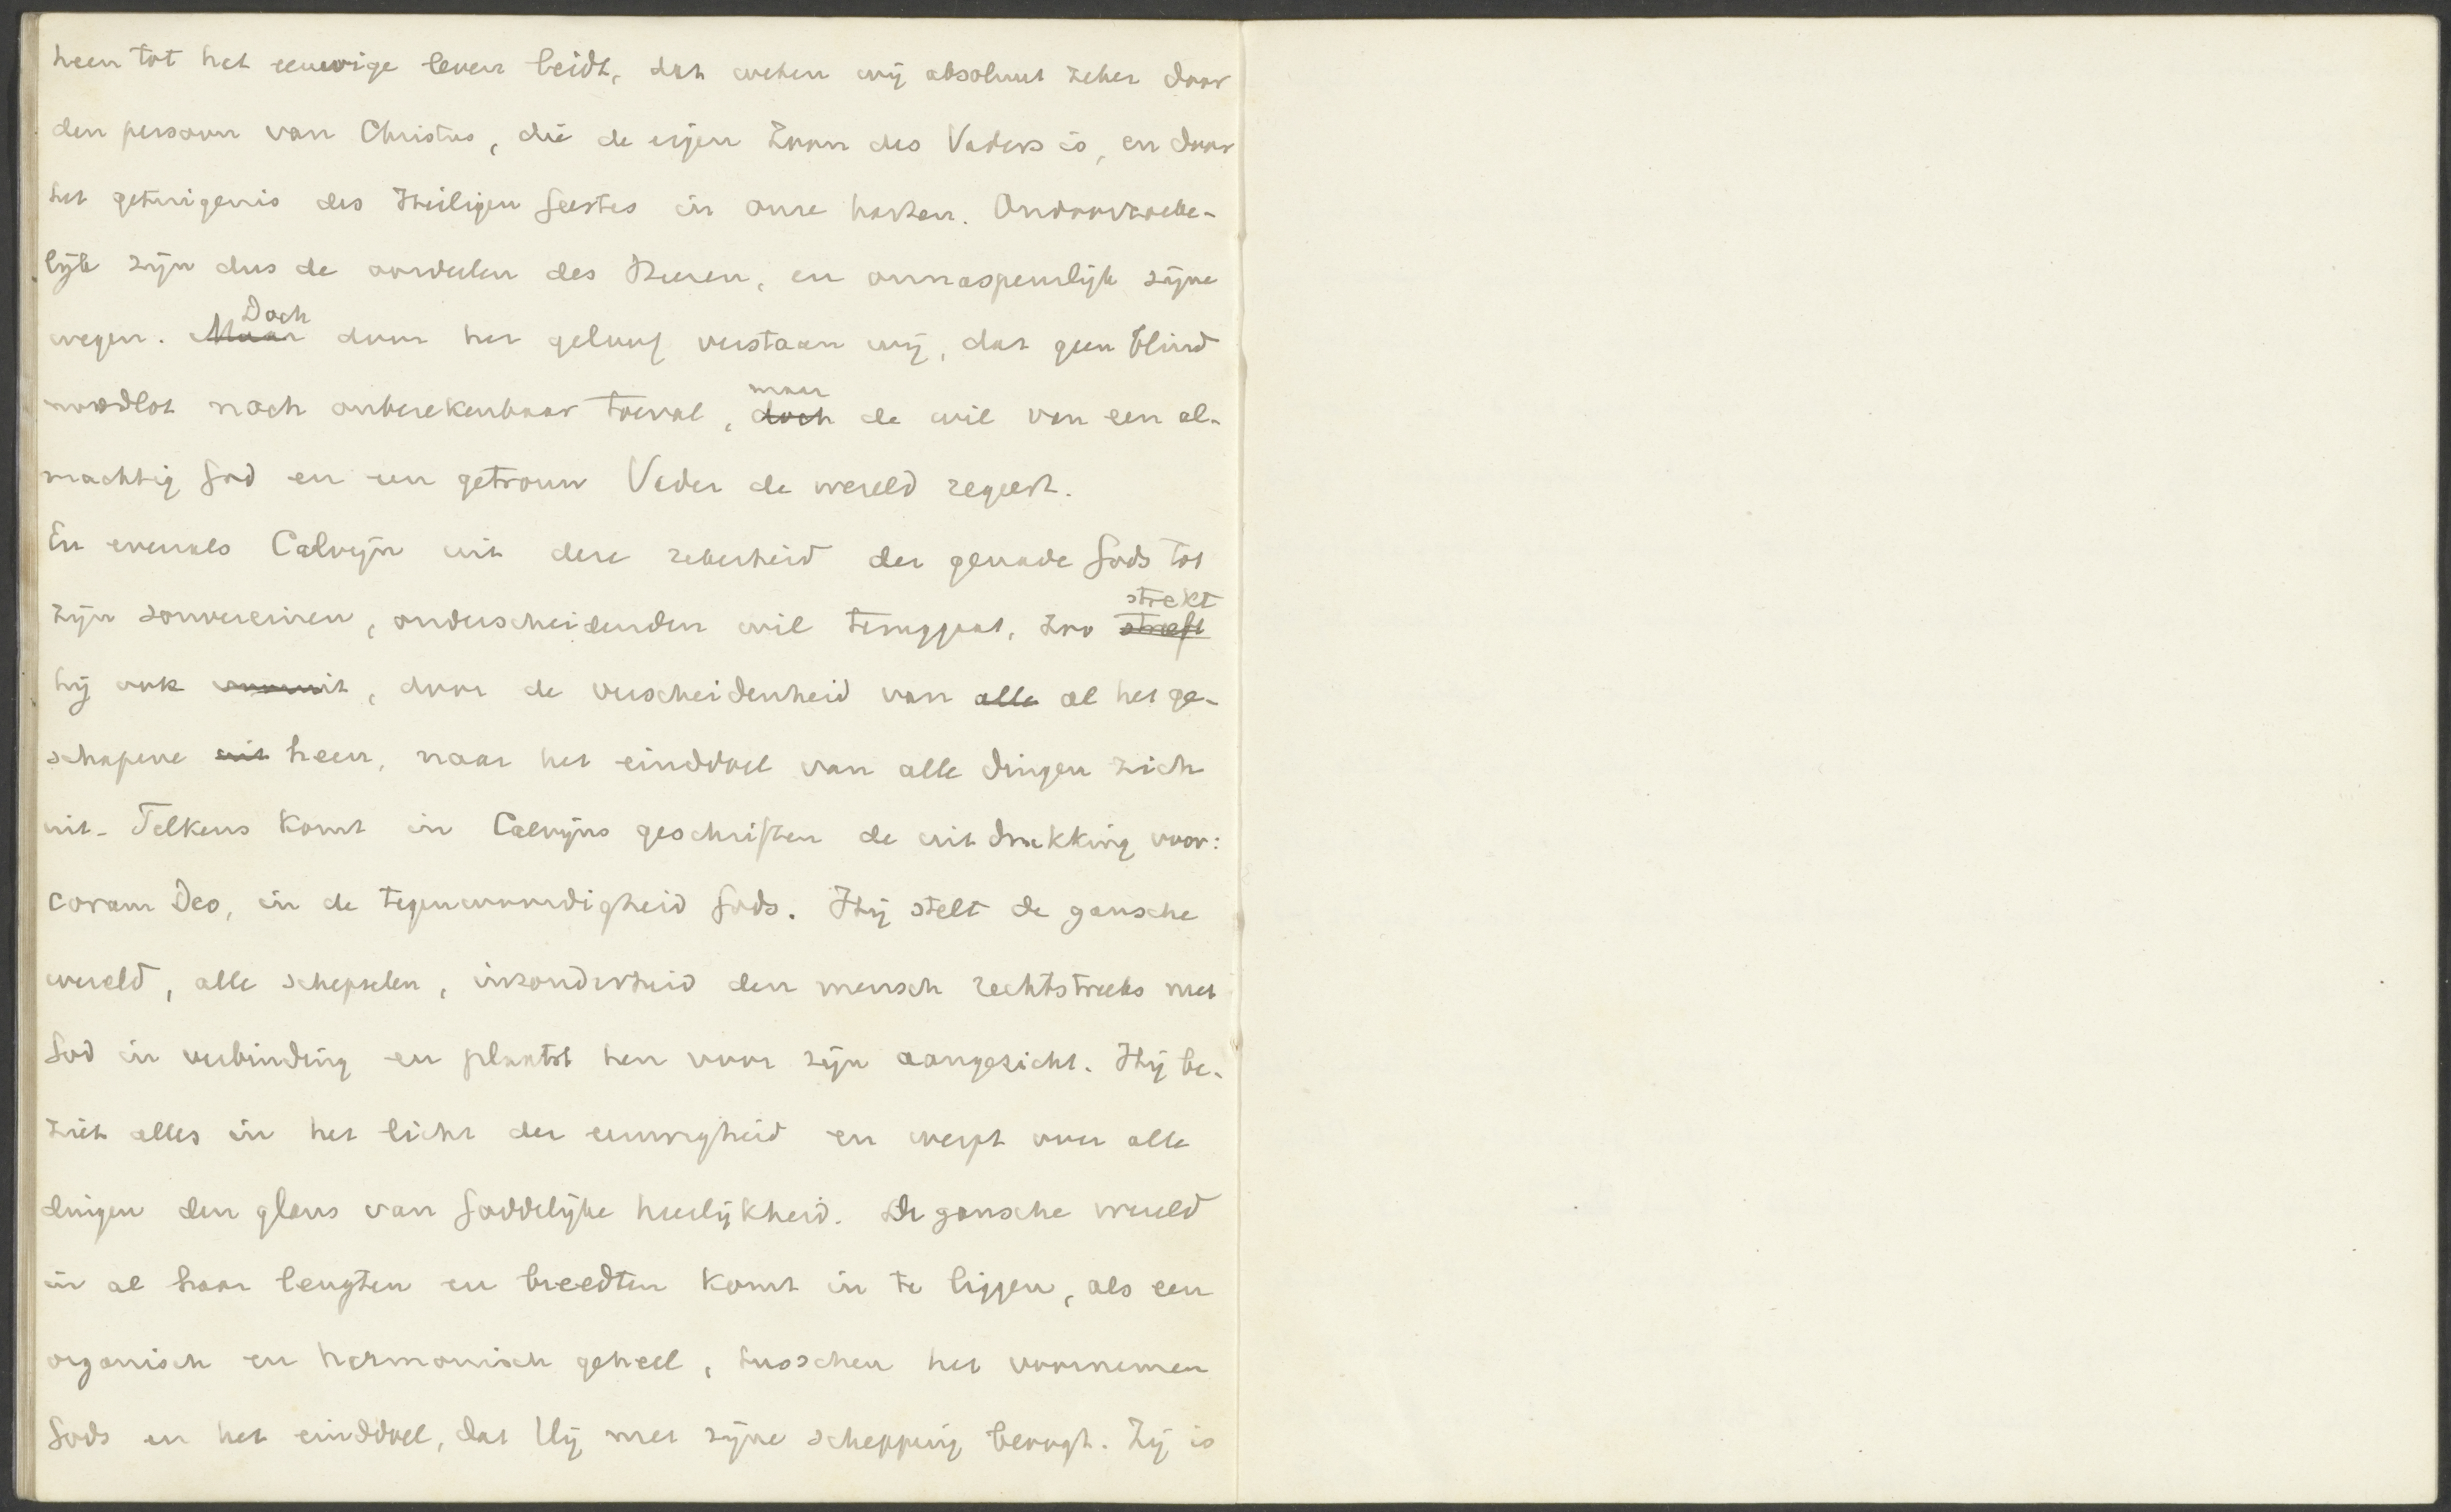 heen tot het eeuwige leven leidt, dat weten wij absoluut zeker door
den persoon van Christus, die de eigen Zoon des Vaders is, en door
het getuigenis des Heiligen Geestes in onze harten. Ondoorzoeke-
lijk zijn dus de oordeelen des Heeren, en onnaspeurlijk zijne
Doch
wegen. Maar door het geloof verstaan wij, dat geen blind
maar
noodlot noch onberekenbaar toeval, doch de wil van een al-
machtig God en een getrouw Vader de wereld regeert.
En evenals Calvijn uit deze zekerheid der genade Gods tot
strekt
zijn souvereinen, onderscheidenden wil teruggaat, zoo streeft
hij ook vooruit, door de verscheidenheid van alle al het ge-
schapene uit heen, naar het einddoel van alle dingen zich
uit. Telkens komt in Calvijns geschriften de uitdrukking voor:
coram Deo, in de tegenwoordigheid Gods. Hij stelt de gansche
wereld, alle schepselen, inzonderheid den mensch rechtstreeks met
God in verbinding en plaatst hen voor zijn aangezicht. Hij be-
ziet alles in het licht der eeuwigheid en werpt over alle
dingen den glans van Goddelijke heerlijkheid. De gansche wereld
in al haar lengten en breedten komt in te liggen, als een
organisch en harmonisch geheel, tusschen het voornemen
Gods en het einddoel, dat Hij met zijne schepping beoogt. Zij is